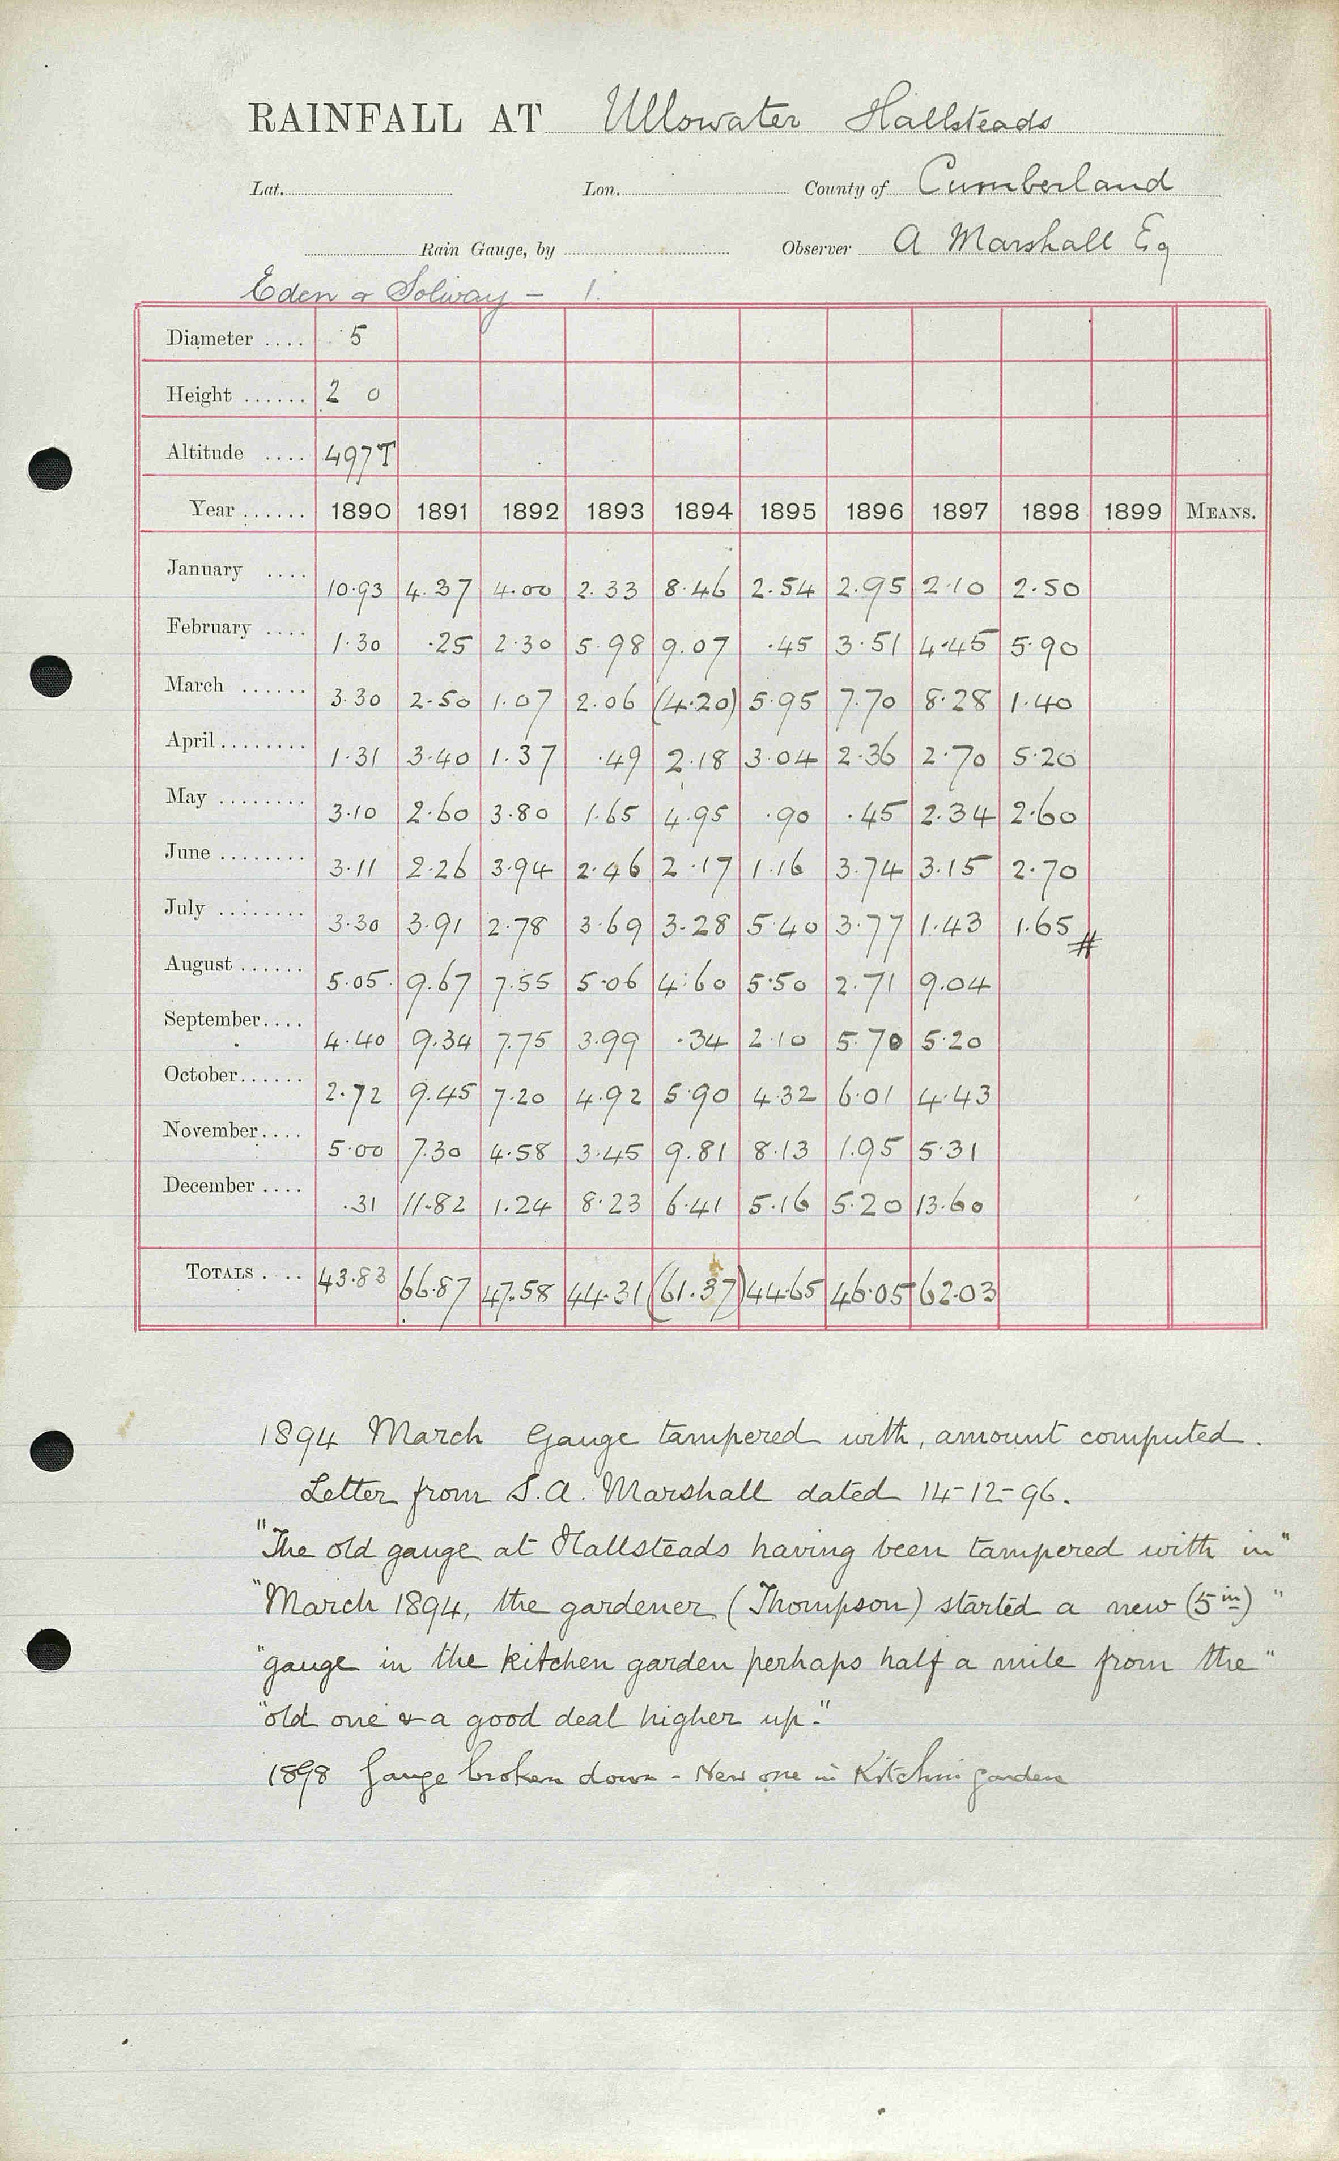 RAINFALL AT Ullswater Hallsteads
Lat. Lon. County of Cumberland
Rain Gauge, by Observer A Marshall Esq
Eden & Solway - 1.
Diameter .... 5
Height ...... 2 0
Altitude .... 497T
Year ...... 1890 1891 1892 1893 1894 1895 1896 1897 1898 1899 MEANS.
January .... 10.93 4.37 4.00 2.33 8.46 2.54 2.95 2.10 2.50
February .... 1.30 .25 2.30 5.98 9.07 .45 3.51 4.45 5.90
March ...... 3.30 2.50 1.07 2.06 (4.20) 5.95 7.70 8.28 1.40
April ........ 1.31 3.40 1.37 .49 2.18 3.04 2.36 2.70 5.20
May ........ 3.10 2.60 3.80 1.65 4.95 .90 .45 2.34 2.60
June ........ 3.11 2.26 3.94 2.46 2.17 1.16 3.74 3.15 2.70
July ........ 3.30 3.91 2.78 3.69 3.28 5.40 3.77 1.43 1.65 #
August ...... 5.05 9.67 7.55 5.06 4.60 5.50 2.71 9.04
September .... 4.40 9.34 7.75 3.99 .34 2.10 5.70 5.20
October ...... 2.72 9.45 7.20 4.92 5.90 4.32 6.01 4.43
November .... 5.00 7.30 4.58 3.45 9.81 8.13 1.95 5.31
December .... .31 11.82 1.24 8.23 6.41 5.16 5.20 13.60
TOTALS .... 43.83 66.87 47.58 44.31 (61.37) 44.65 46.05 62.03
1894 March Gauge tampered with, amount computed.
Letter from S.A. Marshall dated 14-12-96.
"The old gauge at Hallsteads having been tampered with in"
"March 1894, the gardener (Thompson) started a new (5 in) "
"gauge in the kitchen garden perhaps half a mile from the"
"old one & a good deal higher up."
1898 Gauge broken down - New one in Kitchin garden